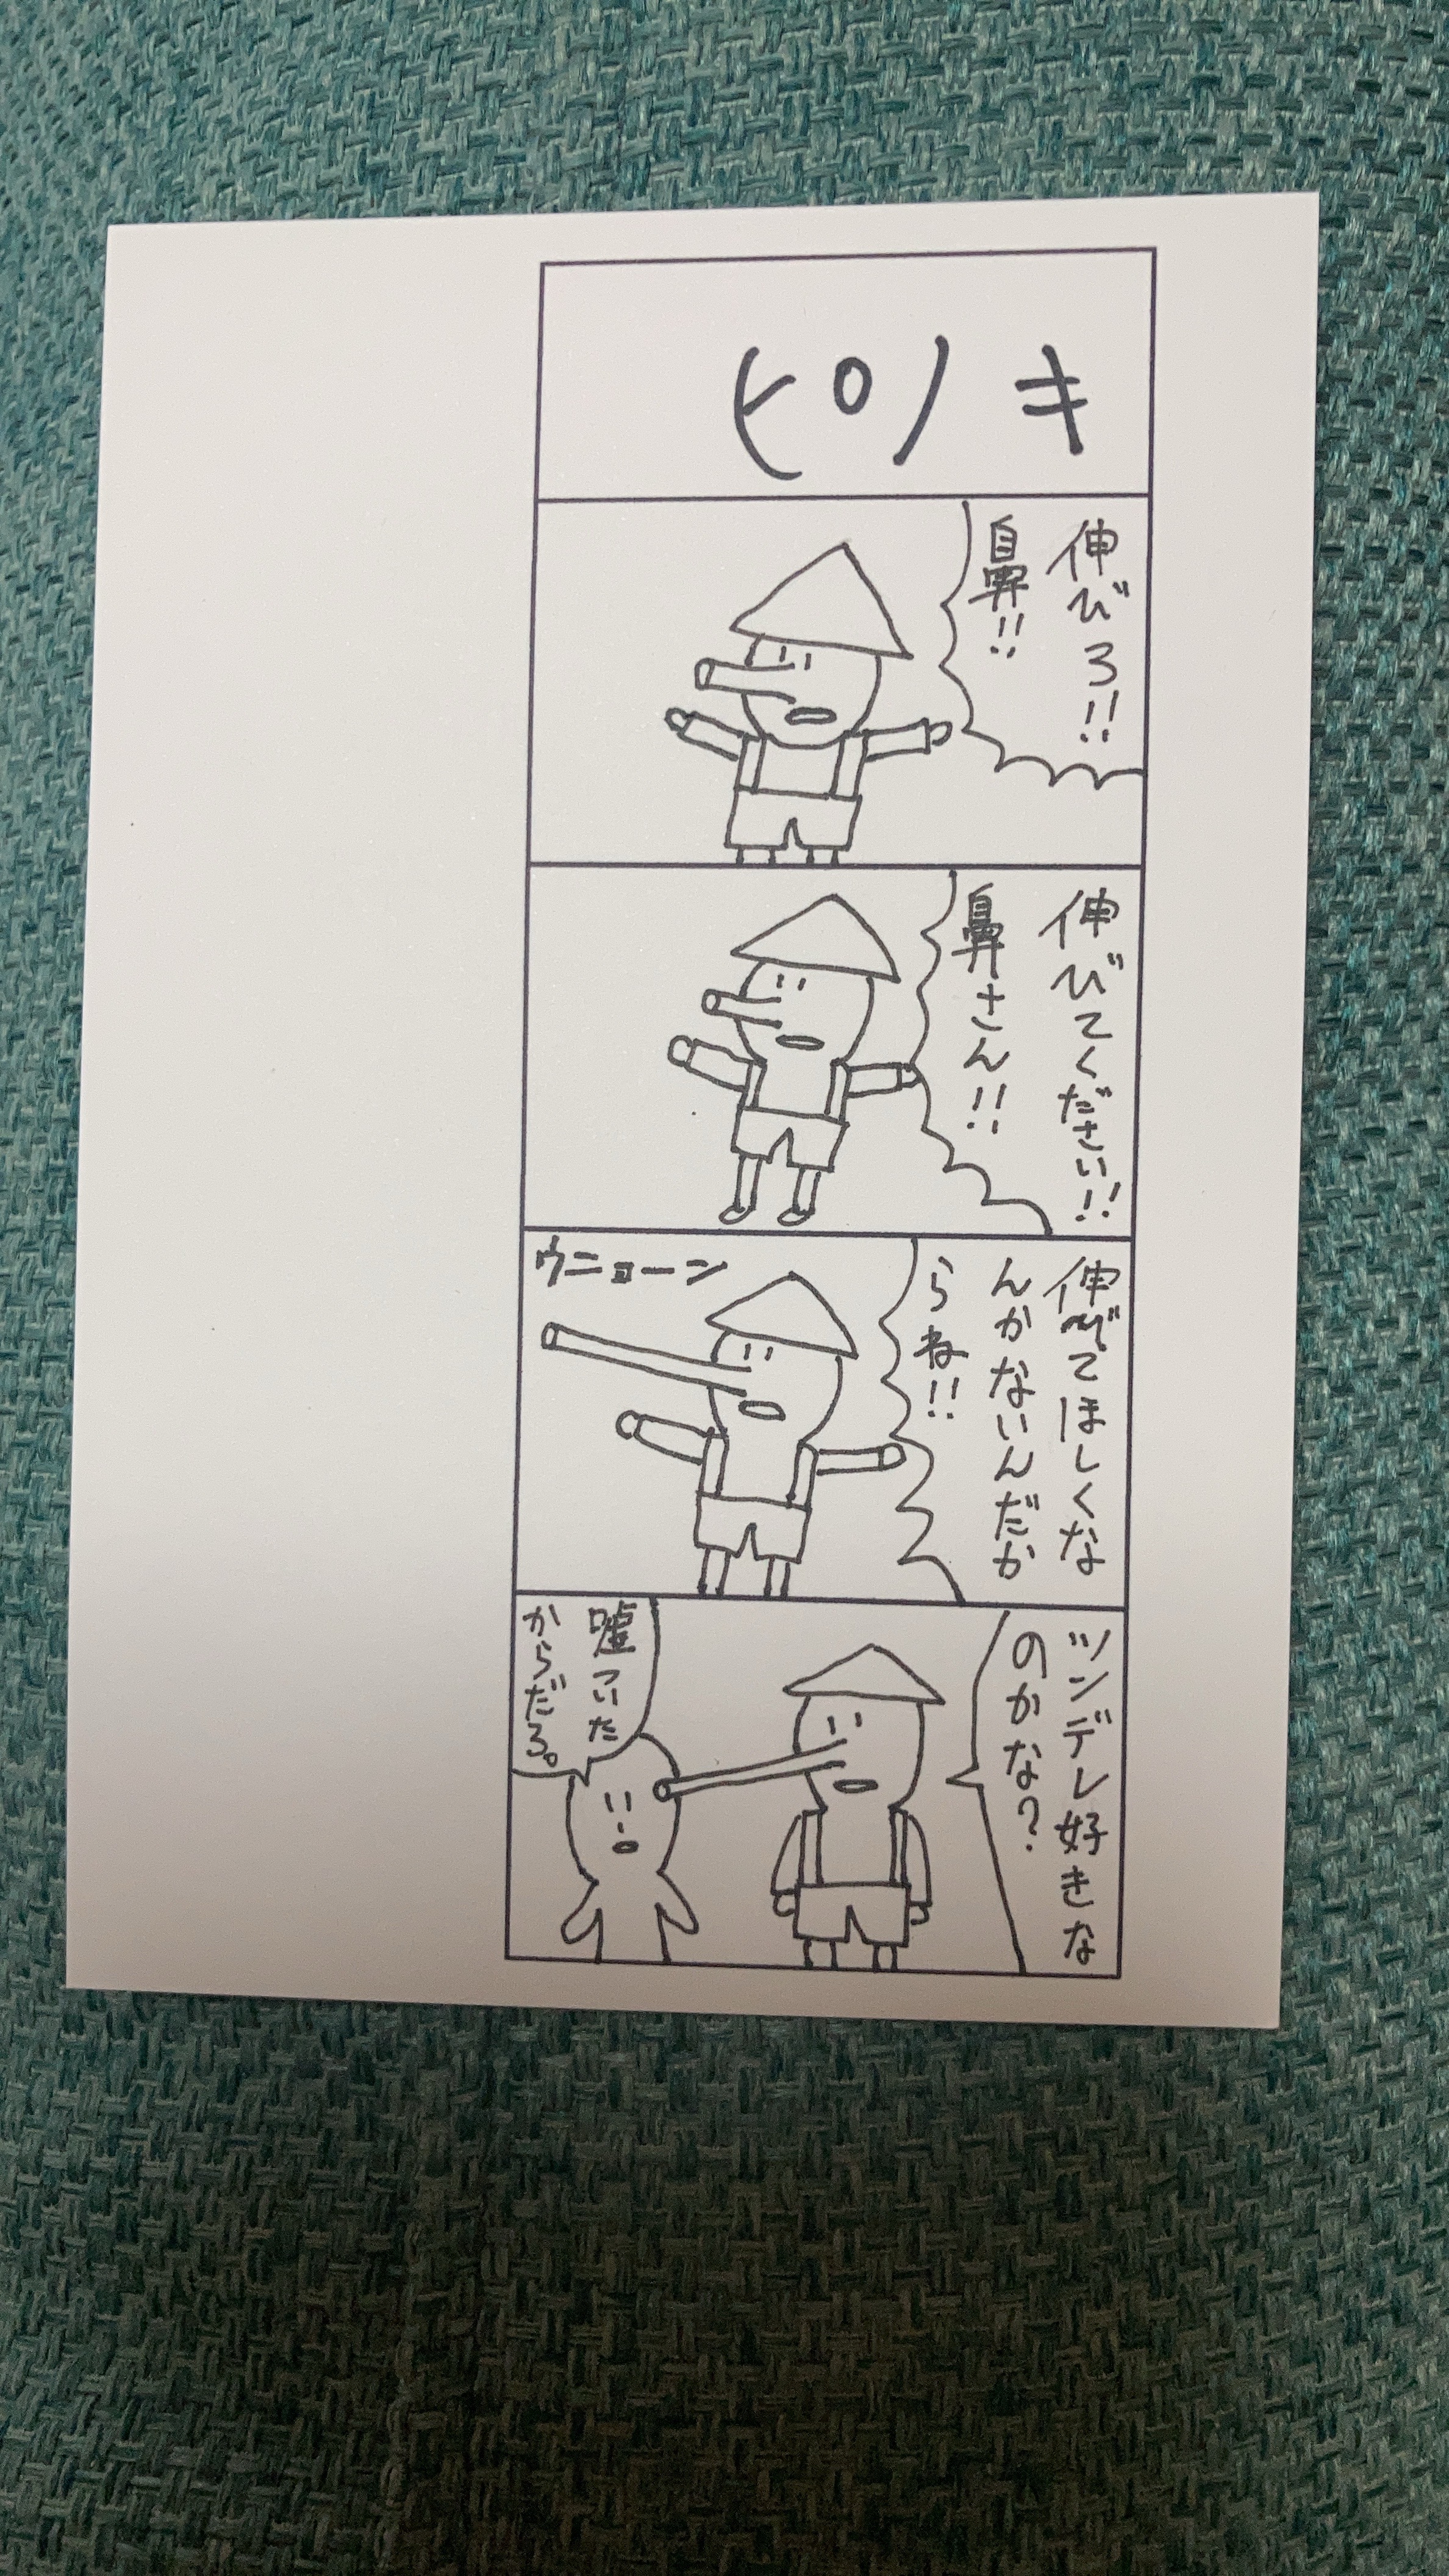 ピノキ
伸びろ!!
鼻!!
伸びてください!!
鼻さん!!
伸びてほしくな
んかないんだか
らね!!
ウニョーン
ツンデレ好きな
のかな?
嘘ついた
からだろ。